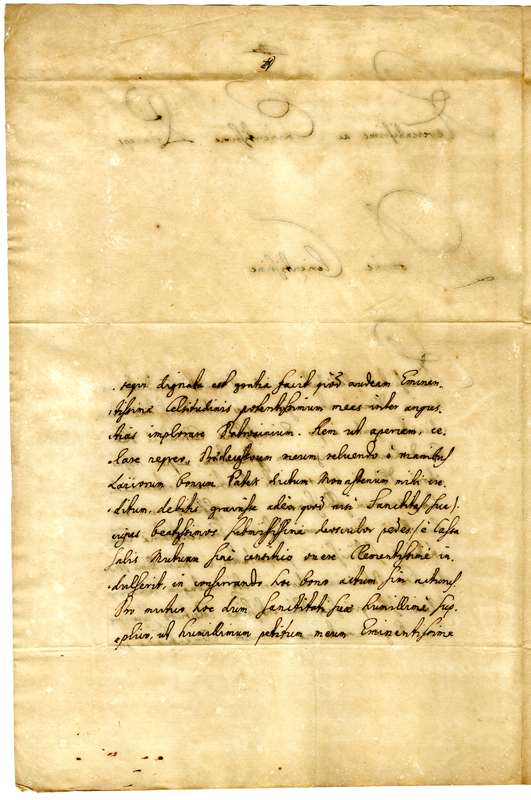 sequi dignata est gratia facit quod audeam Eminen,
tissimae Celsitudinis potentissimum meas inter angus,
tias implorare Patrocinium. Rem ut aperiam, ce,
lare nequeo, Praedecessorem meum reluendo e manibus
Laicorum bonum Patek dictum Monasterium mihi cre,
ditum, debitis gravasse adeo, quod nisi Sanctitas sua /:
cuius beatissimos submississime deosculor pedes :/ e Cassa
Salis Mutuum sine censitico onere Clementissime in,
dulserit, in conservando hoc bono actum sim acturus
Pro mutuo hoc dum Sanctitati suae humillime sup,
plico, ut humillimum petitum meum Eminentissime